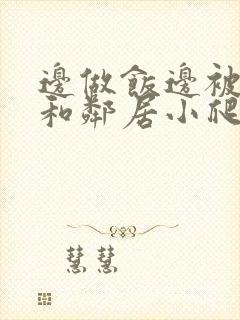 邊做飯邊被
和鄰居小爬
慧慧